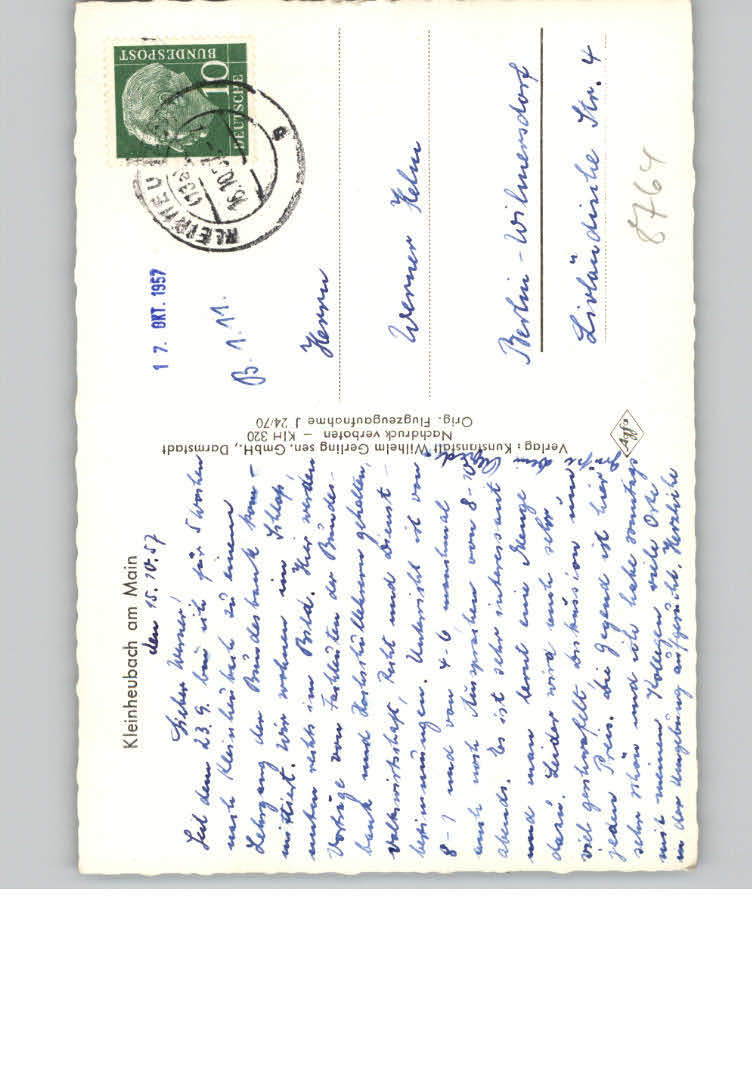 Kleinheubach am Main
den 15.10.57
Lieber Werner!
Seit dem 23.9. bin ich für 5 Wochen
nach Kleinheubach zu einem
Lehrgang der Bundesbank kom-
mittiert. Wir wohnen im Schloß,
unten rechts im Bild. Hier werden
Vorträge von Fachleuten der Bundes-
bank und Hochschullehrern gehalten,
Volkswirtschaft, Recht und Dienst-
bestimmungen. Unterricht ist von
8-1 und von 4-6 manchmal
auch noch Aussprachen von 8-10
abends. Es ist sehr interessant
und man lernt eine Menge
dazu. Leider wird auch sehr
viel gefachsimpelt. Diskussion um
jeden Preis. Die Gegend ist hier
sehr schön und ich habe sonntags
mit meinen Kollegen viele Orte
in der Umgebung aufgesucht. Herzliche
Grüße Dein Alfred.
Verlag: Kunstanstalt Wilhelm Gerling sen. GmbH., Darmstadt
Nachdruck verboten — KIH 320
Orig. Flugzeugaufnahme J 24/70
Agfa
DEUTSCHE
BUNDESPOST
10
KLEINHEU
16.10.
a
17. OKT. 1957
B. 1.11.
Herrn
Werner Helm
Berlin-Wilmersdorf
Livländische Str. 4
8764